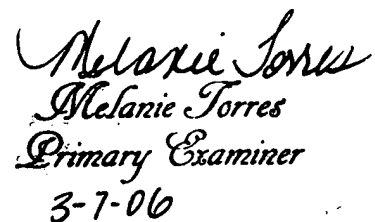 Melanie Torres
Melanie Torres
Primary Examiner
3-7-06